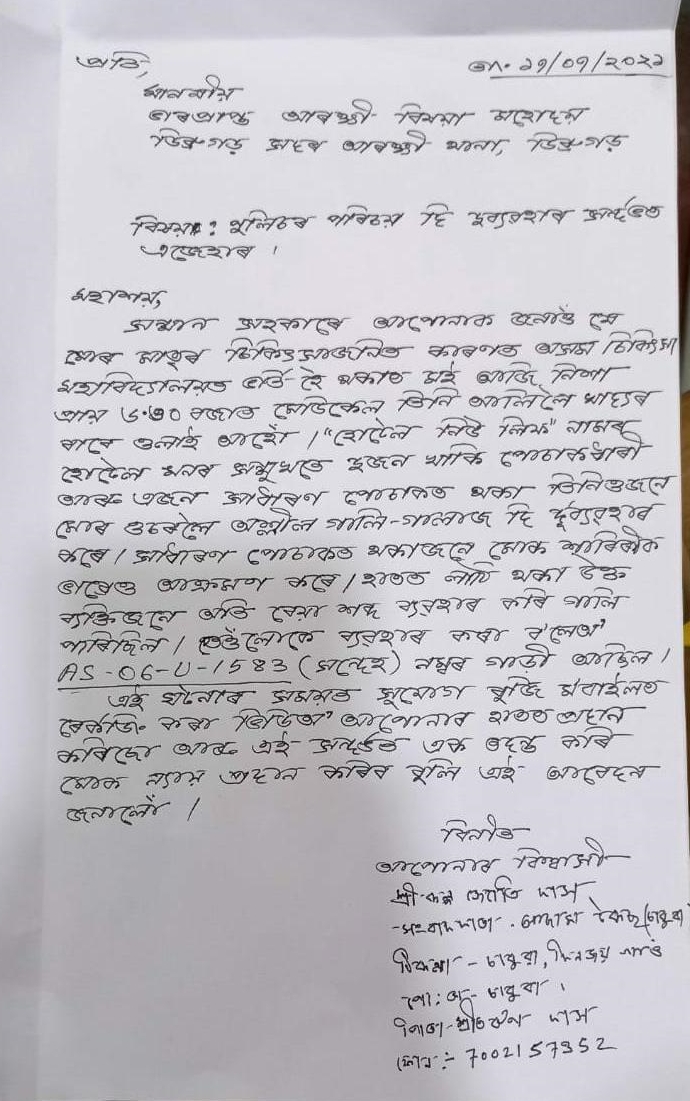 প্ৰতি,
তাং ২১/০৭/২০২১
মাননীয়
ভাৰপ্ৰাপ্ত আৰক্ষী বিষয়া মহোদয়
ডিব্ৰুগড় সদৰ আৰক্ষী থানা, ডিব্ৰুগড়
বিষয় : পুলিচৰ পৰিচয় দি দুৰ্ব্যৱহাৰ সন্দৰ্ভত
এজেহাৰ ।
মহাশয়,
সন্মান সহকাৰে আপোনাক জনাওঁ যে
মোৰ মাতৃৰ চিকিৎসাজনিত কাৰণত অসম চিকিৎসা
মহাবিদ্যালয়ত ভৰ্তি হৈ থকাত মই আজি নিশা
প্ৰায় ৮.৩০ বজাত মেডিকেল তিনি আলিলৈ খাদ্যৰ
বাবে ওলাই আহোঁ । "হোটেল নিউ লিফ" নামৰ
হোটেল খনৰ সন্মুখতে দুজন খাকি পোচাকধাৰী
আৰু এজন সাধাৰণ পোচাকত থকা তিনিওজনে
মোৰ ওচৰলৈ অশ্লীল গালি-গালাজ দি দুৰ্ব্যৱহাৰ
কৰে । সাধাৰণ পোচাকত থকাজনে মোক শাৰিৰীক
ভাৱেও আক্ৰমণ কৰে । হাতত লাঠি থকা উক্ত
ব্যক্তিজনে অতি বেয়া শব্দ ব্যৱহাৰ কৰি গালি
পাৰিছিল । তেওঁলোকে ব্যৱহাৰ কৰা ব'লেৰ'
AS-06-U-1583 (সন্দেহ) নম্বৰ গাড়ী আছিল ।
এই ঘটনাৰ সময়ত সুযোগ বুজি মবাইলত
ৰেকৰ্ডিং কৰা ভিডিঅ' আপোনাৰ হাতত প্ৰদান
কৰিছো আৰু এই সন্দৰ্ভত এক তদন্ত কৰি
মোক ন্যায় প্ৰদান কৰিব বুলি এই আবেদন
জনালোঁ ।
বিনীত
আপোনাৰ বিশ্বাসী
শ্ৰী জ্যোতি দাস
সংবাদদাতা . (চাবুৱা)
ঠিকনা - চাবুৱা, দিনজয় গাওঁ
পো: অ:- চাবুৱা ।
পিতা-শ্ৰী দাস
ফোন :- 7002157352